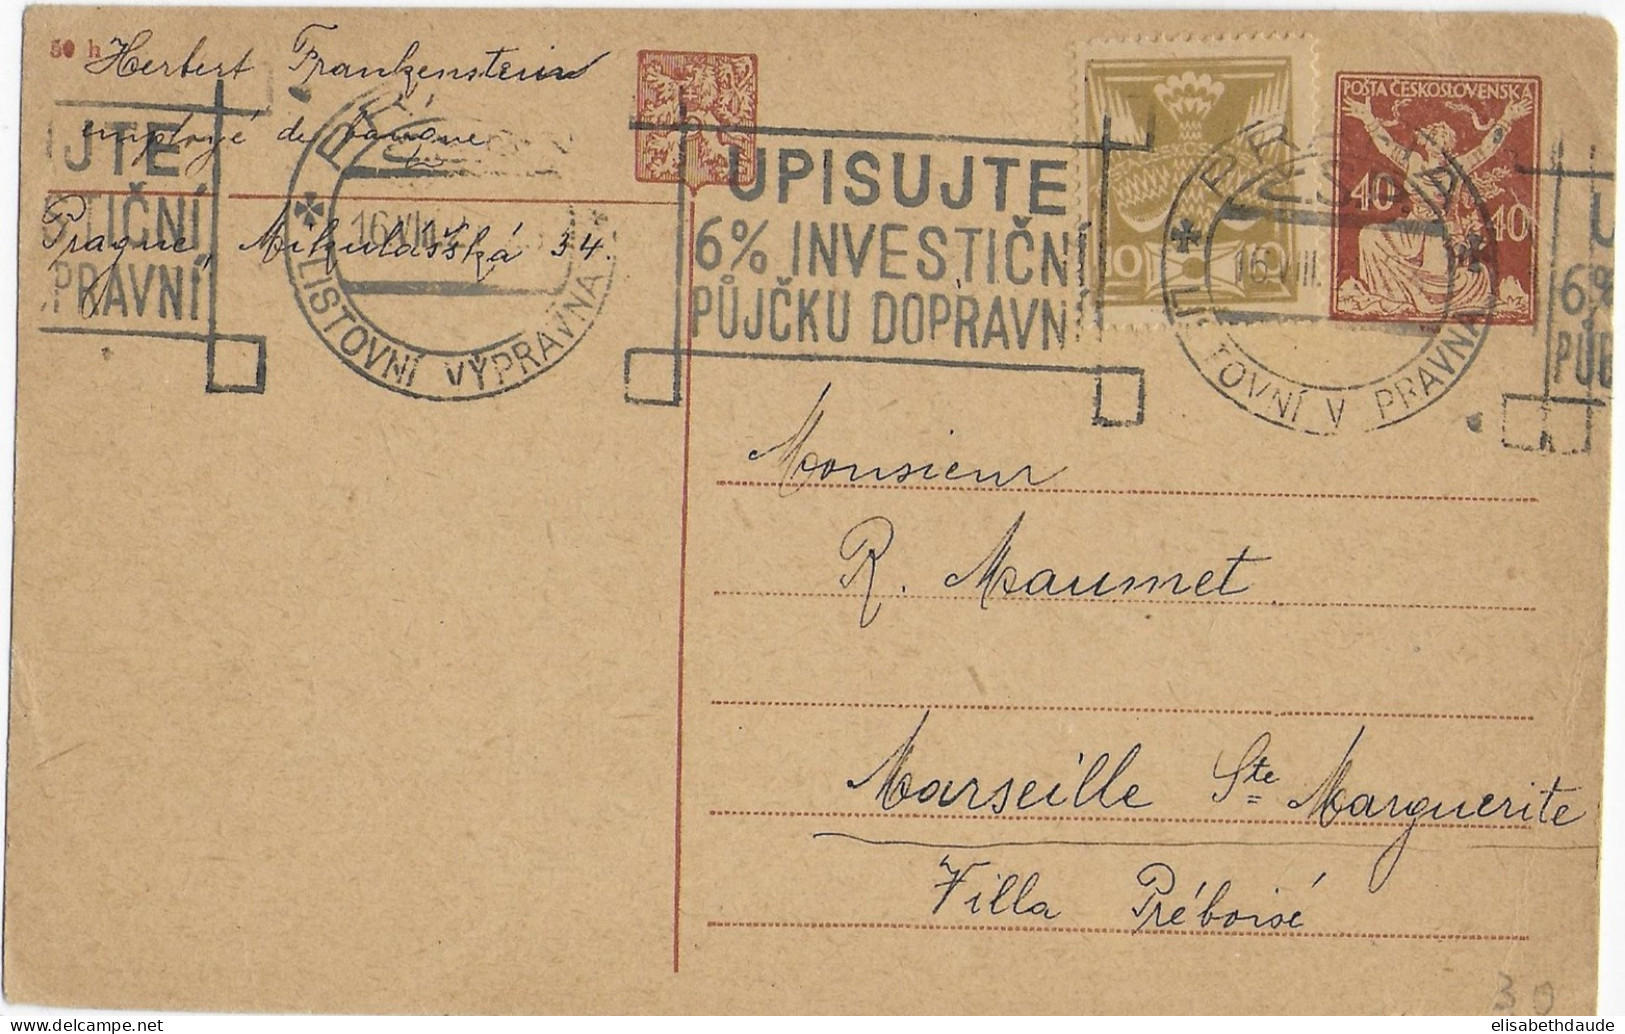 50 h
Herbert Frankenstein
employé de banque
Prague, Mikulášská 34.
JTE
TIČNÍ
PRAVNÍ
16.VIII
LISTOVNÍ VÝPRAVNA
UPISUJTE
6% INVESTIČNÍ
PŮJČKU DOPRAVNÍ
10 10
PRAHA
16.VIII.
LISTOVNÍ VÝPRAVNA
POŠTA ČESKOSLOVENSKÁ
40 40
U
6%
Monsieur
R. Maumet
Marseille Ste Marguerite
Villa Préboisé
30
elisabethdaude